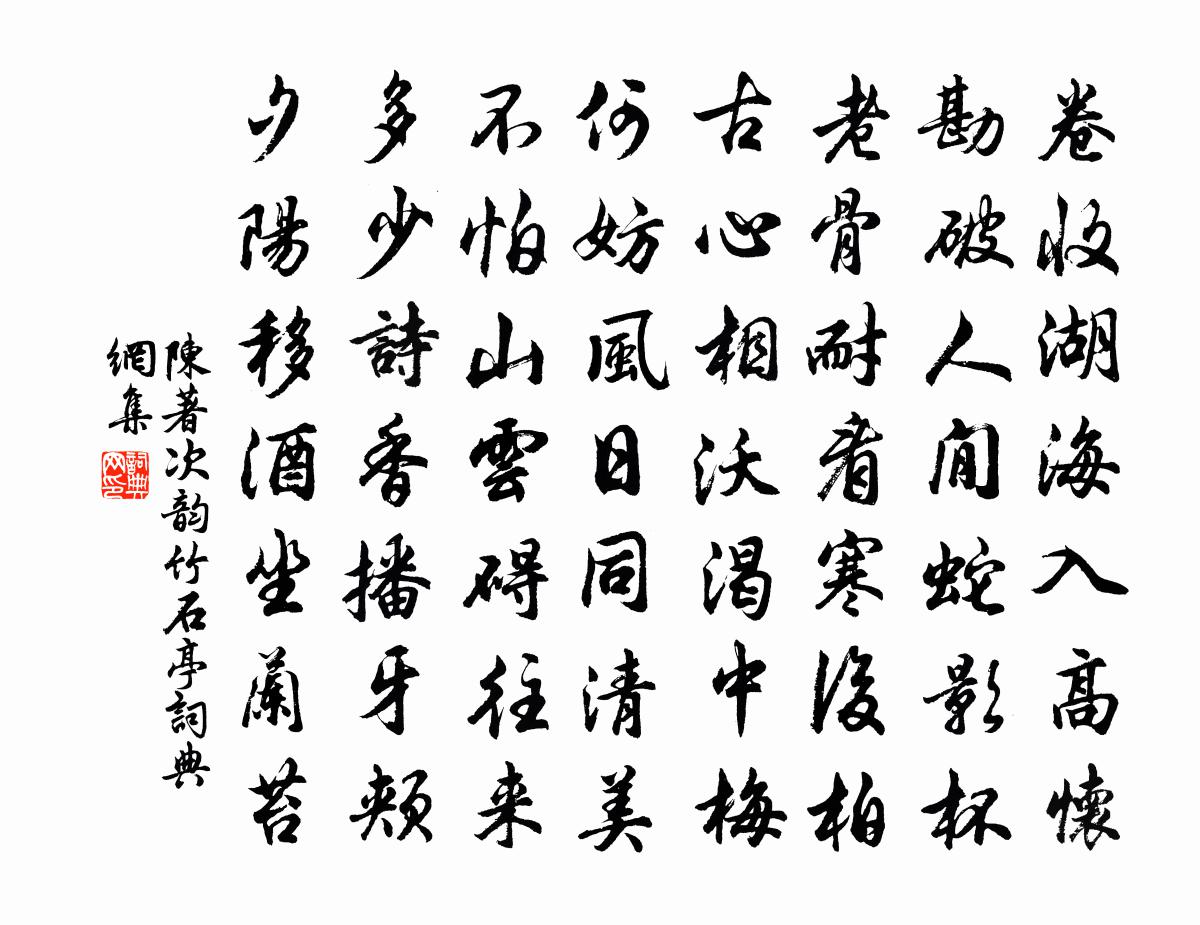 卷收湖海入高懷
勘破人間蛇影杯
老骨耐看寒後柏
古心相沃渴中梅
何妨風日同清美
不怕山雲碍往来
多少詩香播牙頰
夕陽移酒坐蘭苔
陳著次韵竹石亭詞典
網集
詞典
网印